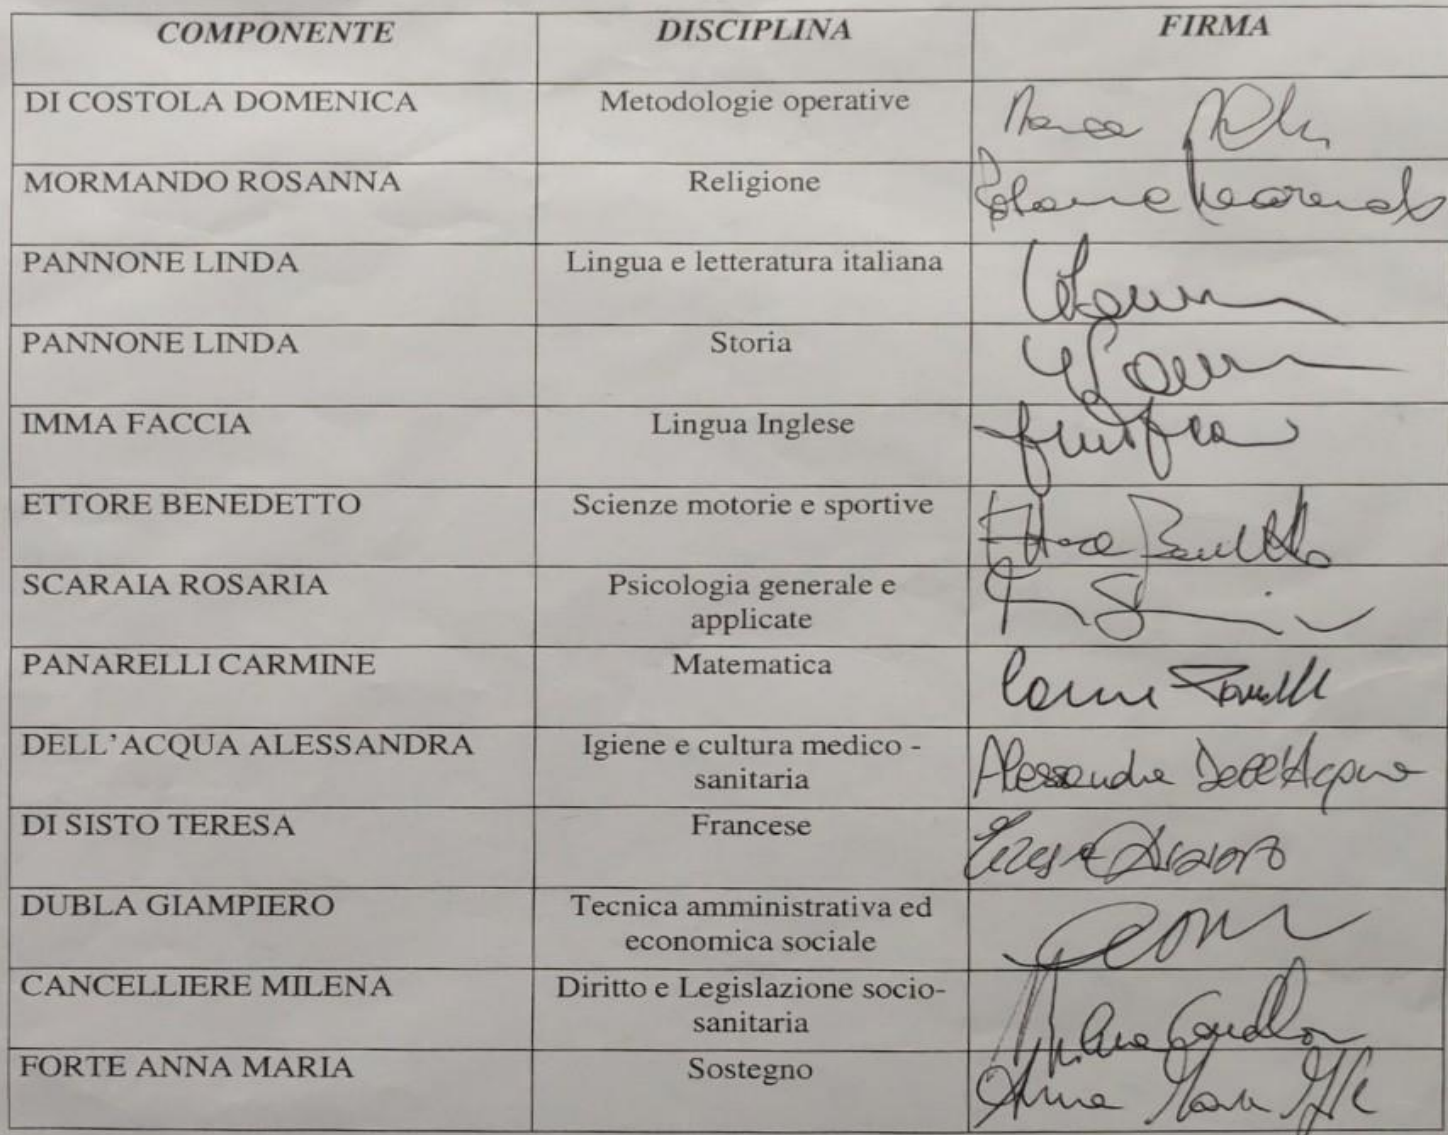 COMPONENTE DISCIPLINA FIRMA
DI COSTOLA DOMENICA Metodologie operative
MORMANDO ROSANNA Religione
PANNONE LINDA Lingua e letteratura italiana
PANNONE LINDA Storia
IMMA FACCIA Lingua Inglese
ETTORE BENEDETTO Scienze motorie e sportive Ettore Benedetto
SCARAIA ROSARIA Psicologia generale e
applicate
PANARELLI CARMINE Matematica
DELL'ACQUA ALESSANDRA Igiene e cultura medico - Alessandra Dell'Acqua
sanitaria
DI SISTO TERESA Francese
DUBLA GIAMPIERO Tecnica amministrativa ed
economica sociale
CANCELLIERE MILENA Diritto e Legislazione socio-
sanitaria
FORTE ANNA MARIA Sostegno Anna Maria